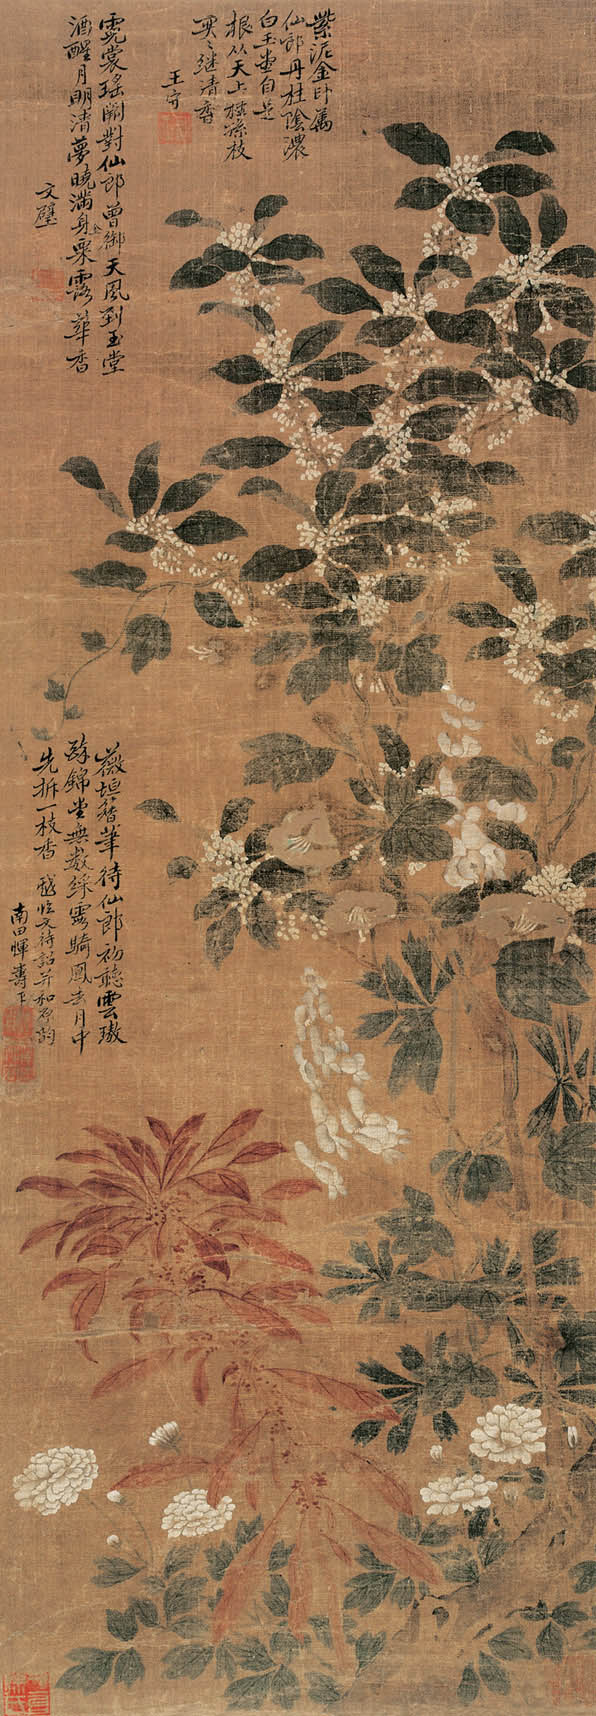 紫泥金印屬
仙郎丹桂陰濃
白玉堂自是
根從天上種孫枝
奕〻継清香
王守
霓裳瑤闕對仙郎曾御天風到玉堂
酒醒月明清夢曉滿身金粟露華香
文璧
薇垣簪筆待仙郎初聽雲璈
錦堂無數綵騎鳳去月中
先折一枝香 戲臨文待詔并和原韵
南田惲壽平